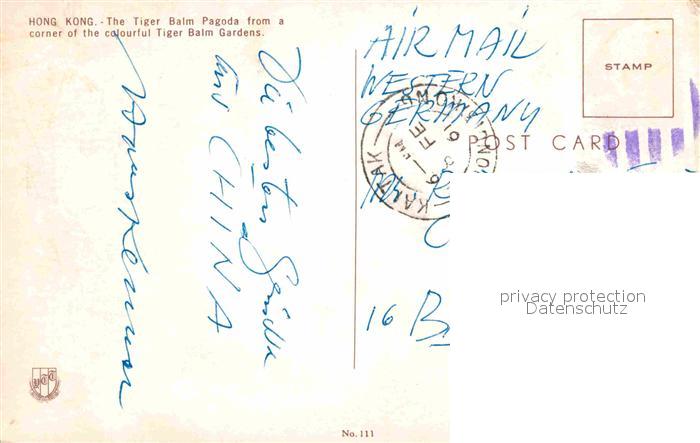 HONG KONG. - The Tiger Balm Pagoda from a
corner of the colourful Tiger Balm Gardens.
Die besten Grüße
aus CHINA
AIR MAIL
WESTERN
GERMANY
STAMP
POST CARD
KAI TAK
HONG KONG
6 - PM
FE
61
16 B
privacy protection
Datenschutz
No. 111